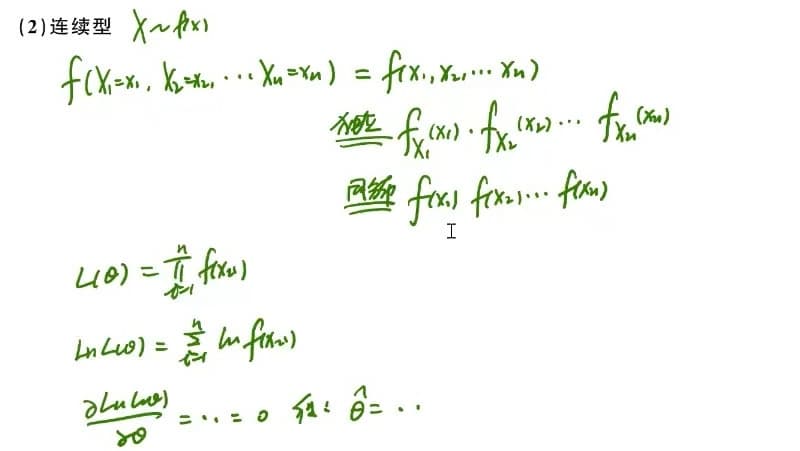 (2)连续型 X~f(x)
f(X₁=x₁, X₂=x₂, ⋯ Xₙ=xₙ) = f(x₁, x₂, ⋯ xₙ)
独立 f_X₁(x₁) · f_X₂(x₂) ⋯ f_Xₙ(xₙ)
同分布 f(x₁) f(x₂) ⋯ f(xₙ)
L(θ) = ∏ⁿᵢ₌₁ f(xᵢ)
ln L(θ) = ∑ⁿᵢ₌₁ ln f(xᵢ)
∂ln L(θ)/∂θ = ⋯ = 0 θ̂ = ⋯